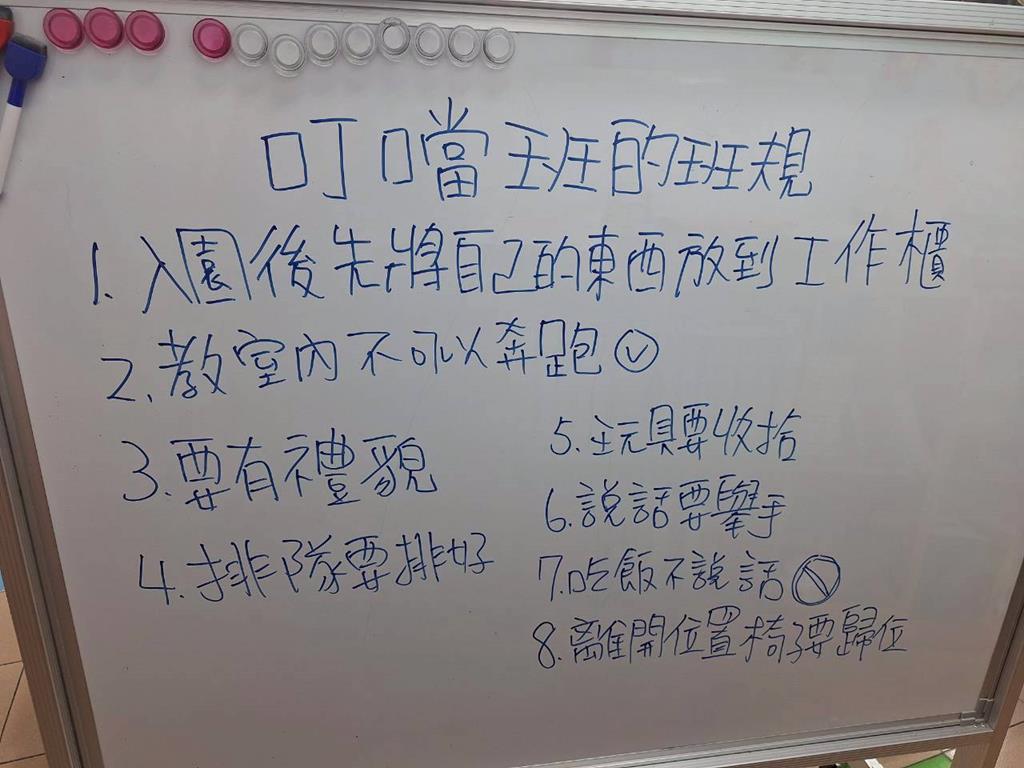 叮噹班的班規
1. 入園後先將自己的東西放到工作櫃
2. 教室內不可以奔跑
3. 要有禮貌
4. 排隊要排好
5. 玩具要收拾
6. 說話要舉手
7. 吃飯不說話
8. 離開位置椅子要歸位